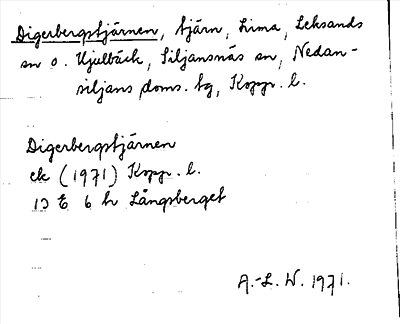 Digerbergstjärnen, tjärn, Lima, Leksands
sn o. Hjulbäck, Siljansnäs sn, Nedan-
siljans doms. tg, Kopp. l.
Digerbergstjärnen
ek (1971) Kopp. l.
13 E 6 h Långberget
A.-L. W. 1971.